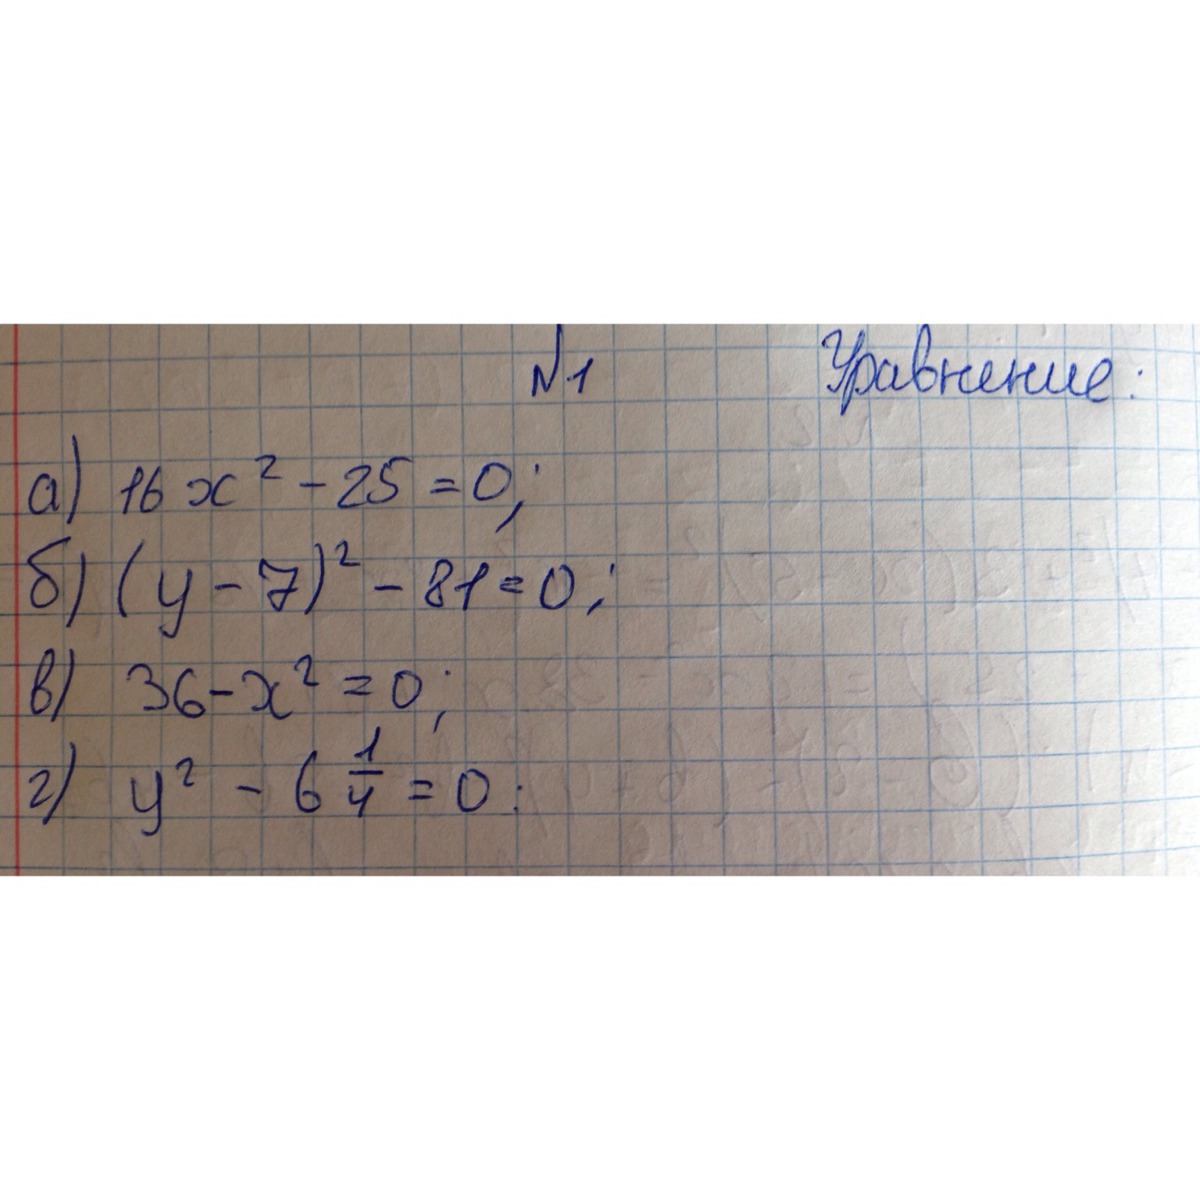 №1 Уравнение:
а) 16x² - 25 = 0;
б) (y - 7)² - 81 = 0;
в) 36 - x² = 0;
г) y² - 6 1/4 = 0.